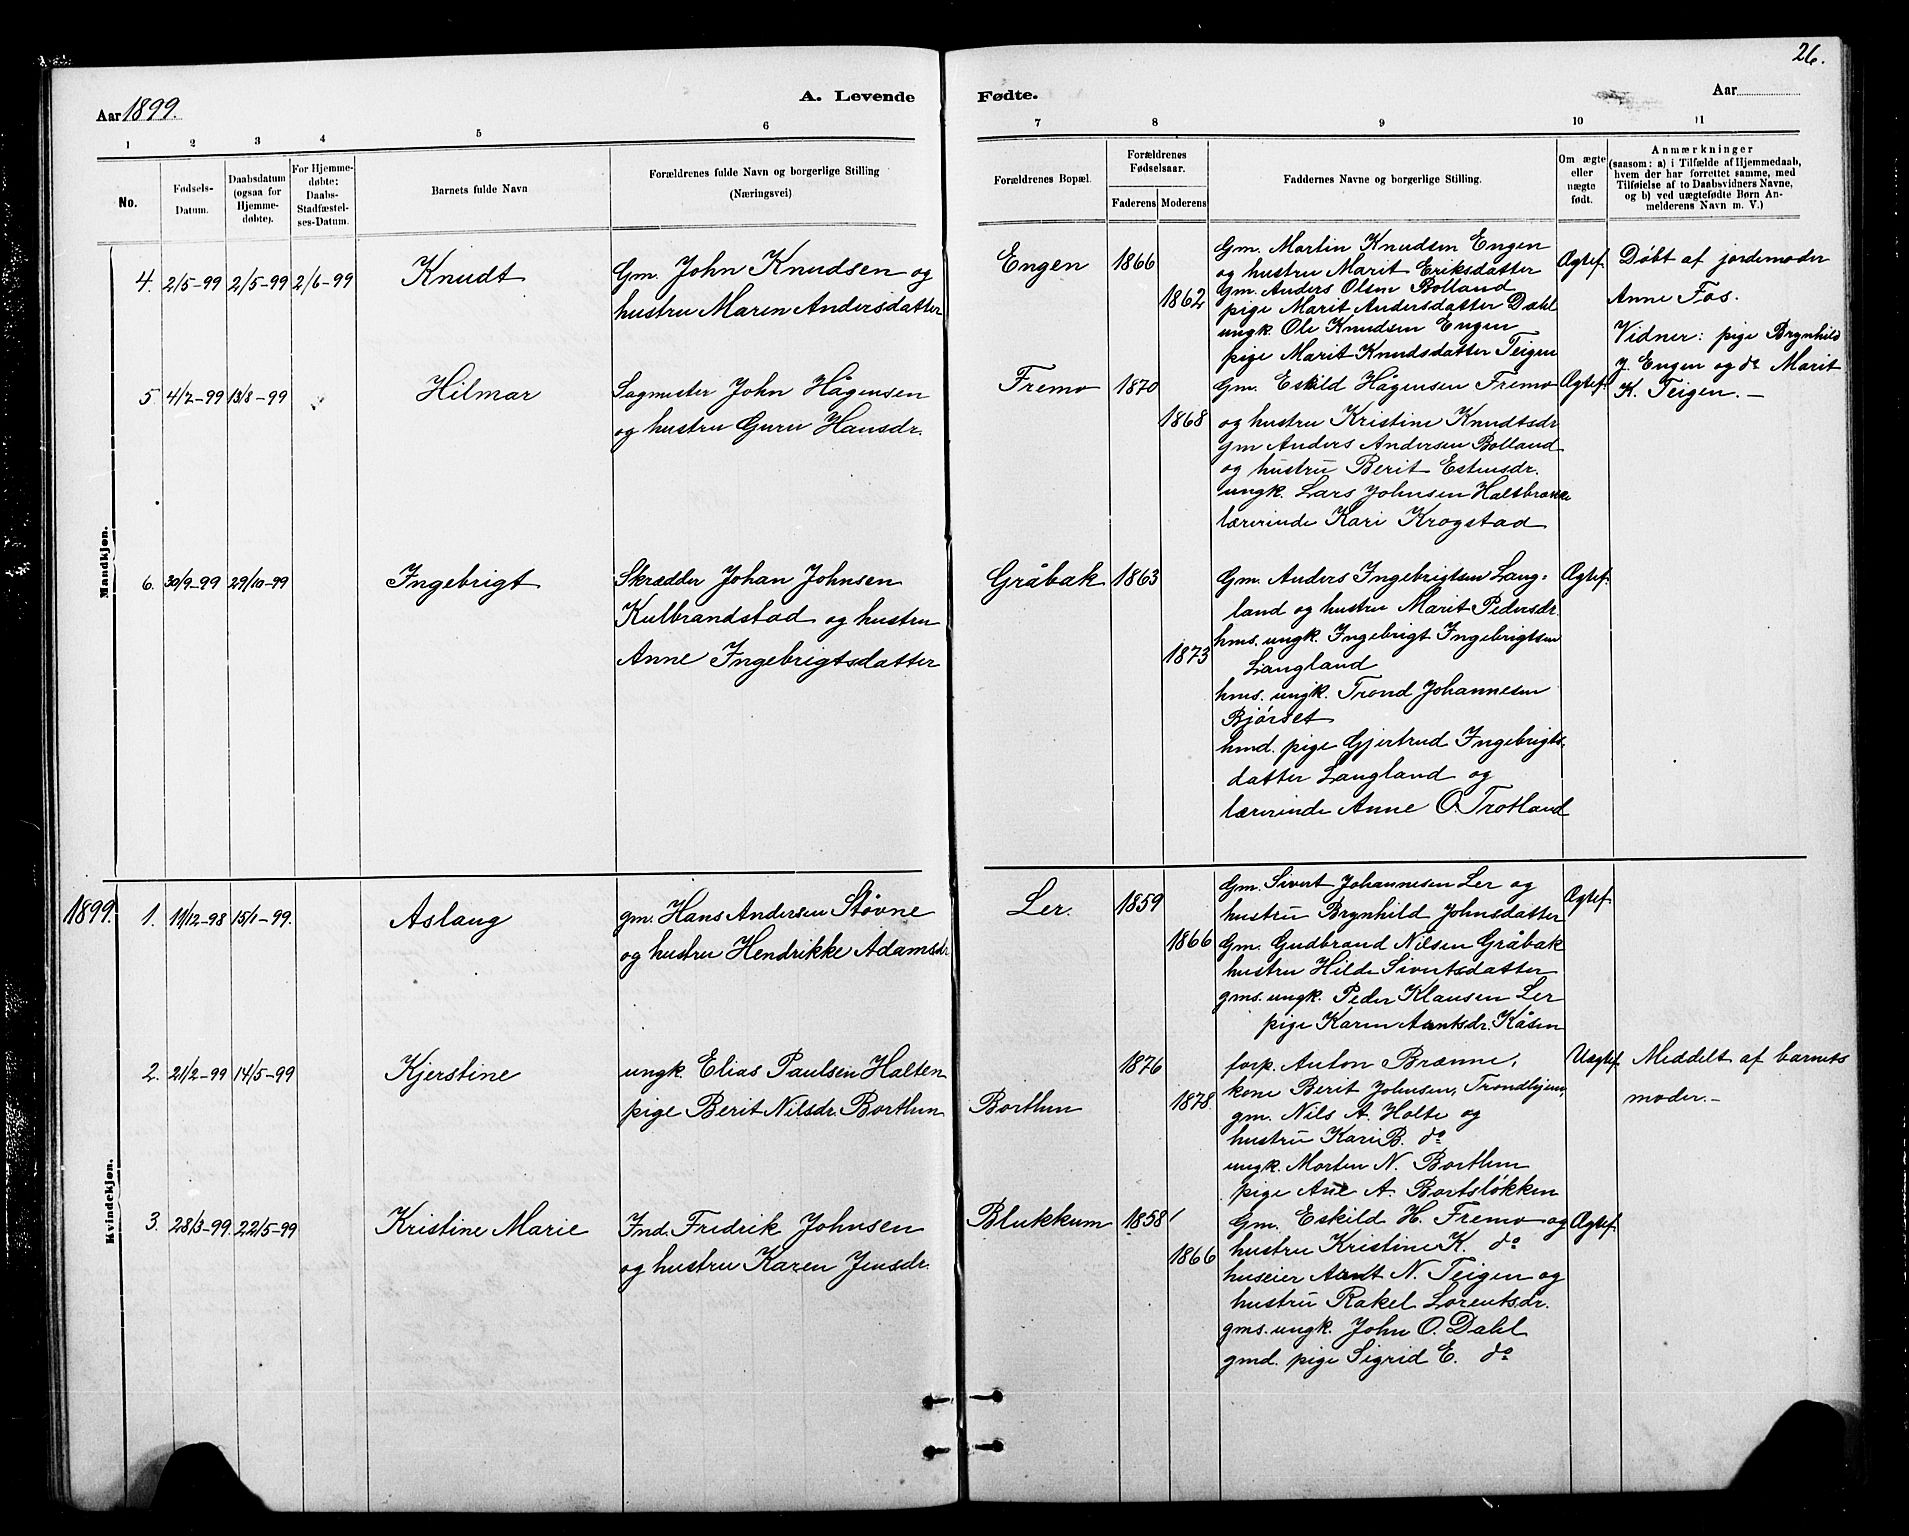 26.
Aar 1899.
A. Levende Fødte.
Aar
1 2 3 4 5 6 7 8 9 10 11
No.
Fødsels-Datum.
Daabsdatum (ogsaa for Hjemmedøbte).
For Hjemmedøbte: Daabs-Stadfæstelses-Datum.
Barnets fulde Navn
Forældrenes fulde Navn og borgerlige Stilling
(Næringsvei)
Forældrenes Bopæl.
Forældrenes Fødselsaar.
Faderens Moderens
Faddernes Navne og borgerlige Stilling.
Om ægte eller uægte født.
Anmærkninger
(saasom: a) i Tilfælde af Hjemmedaab,
hvem der har forrettet samme, med
Tilføielse af to Daabsvidners Navne,
og b) ved uægtefødte Børn Anmelderens Navn m. V.)
Mandkjøn.
4. 2/5-99 2/5-99 2/6-99 Knudt
Gm. John Knudsen og
hustru Maren Andersdatter
Engen 1866
1862
Gm. Martin Knudsen Engen
og hustru Marit Eriksdatter
Gm. Anders Olsen Bolland
pige Marit Andersdatter Dahl
ungk. Ole Knudsen Engen
pige Marit Knudsdatter Teigen
Ægtef.
Døbt af jordemoder
Anne Fos.
Vidner: pige Brynhild
J. Engen og do Marit
K. Teigen. —
5 4/7-99 13/8-99 Hilmar
Sagmester John Hågensen
og hustru Guru Hansdr.
Fremo 1870
1868
Gm. Eskild Hågensen Fremo
og hustru Kristine Knudtsdr
gm Anders Andersen Bolland
og hustru Berit Estensdr.
ungk. Lars Johnsen Haltbrække
lærerinde Kari Krogstad
Ægtef.
6. 30/9-99 29/10-99 Ingebrigt
Skrædder Johan Johnsen
Kulbrandstad og hustru
Anne Ingebrigtsdatter
Gråbak 1863
1873
Gm. Anders Ingebrigtsen Lang-
land og hustru Marit Pedersdr.
hms. ungk. Ingebrigt Ingebrigtsen
Langland
hms. ungk. Trond Johannesen
Bjørset
hmd. pige Gjertrud Ingebrigts-
datter Langland og
lærerinde Anne O. Trotland
Ægtef.
1899.
Kvindekjøn.
1. 11/12-98 15/1-99. Aslaug
gm. Hans Andersen Støvne
og hustru Hendrikke Adamsdr
Ler. 1859
1866
Gm. Sivert Johannesen Ler og
hustru Brynhild Johnsdatter
Gm. Gudbrand Nilsen Gråbak
hustru Hilde Sivertsdatter
gms. ungk. Peder Klausen Ler
pige Karen Arntsdr. Kåsen
Ægtef.
2. 21/2-99 14/5-99 Kjerstine
ungk. Elias Paulsen Halten
pige Berit Nilsdr. Borthen
Borthen
1876
1878
forp. Anton Brænne,
kone Berit Johnsen, Trondhjem,
gm. Nils A. Holte og
hustru Kari B. do
ungk. Morten N. Borthen
pige Ane A. Bortsløkken
Uægtef.
Meddelt af barnets
moder. —
3. 28/3-99. 22/5-99 Kristine Marie
Ind. Fredrik Johnsen
og hustru Karen Jensdr.
Blukkum 1858
1866
Gm. Eskild H. Fremo og
hustru Kristine K. do
huseier Arnt N. Teigen og
hustru Rakel Lorentsdr.
gms. ungk. John O. Dahl
gmd. pige Sigrid E. do
Ægtef.